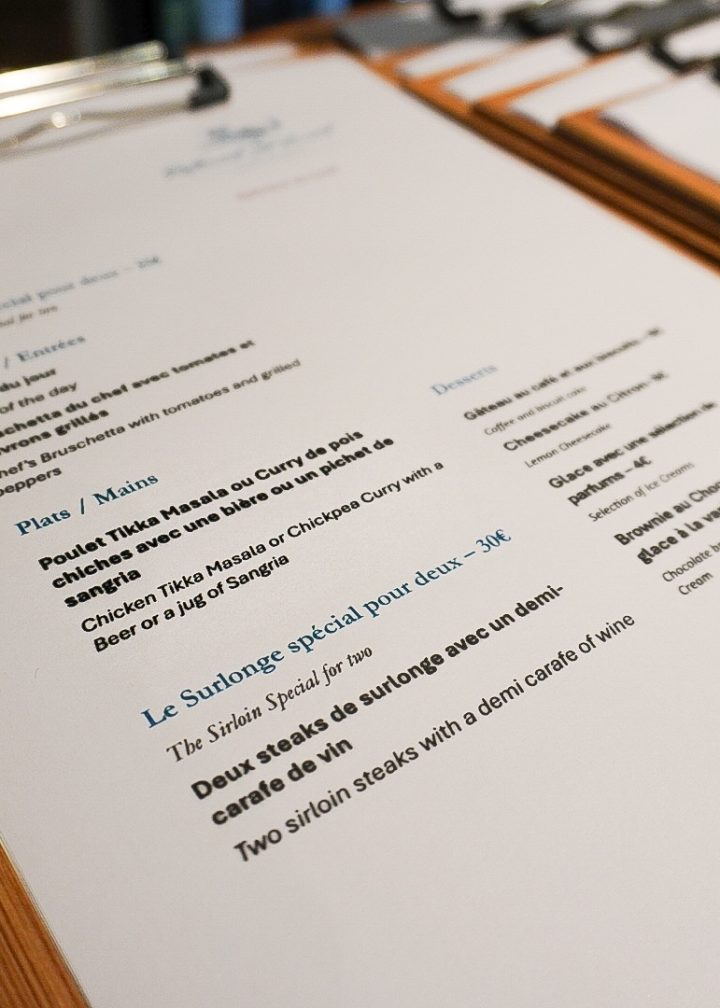 pour deux – 25€
for two
/ Entrées
du jour
of the day
du chef avec tomates et
grillés
Chef's Bruschetta with tomatoes and grilled
peppers
Plats / Mains
Poulet Tikka Masala ou Curry de pois
chiches avec une bière ou un pichet de
sangria
Chicken Tikka Masala or Chickpea Curry with a
Beer or a jug of Sangria
Le Surlonge spécial pour deux – 30€
The Sirloin Special for two
Deux steaks de surlonge avec un demi-
carafe de vin
Two sirloin steaks with a demi carafe of wine
Desserts
Gâteau au café et aux biscuits –
Coffee and biscuit cake
Cheesecake au Citron–
Lemon Cheesecake
Glace avec une sélection de
parfums – 4€
Selection of Ice Creams
Brownie au
glace à la
Chocolate
Cream